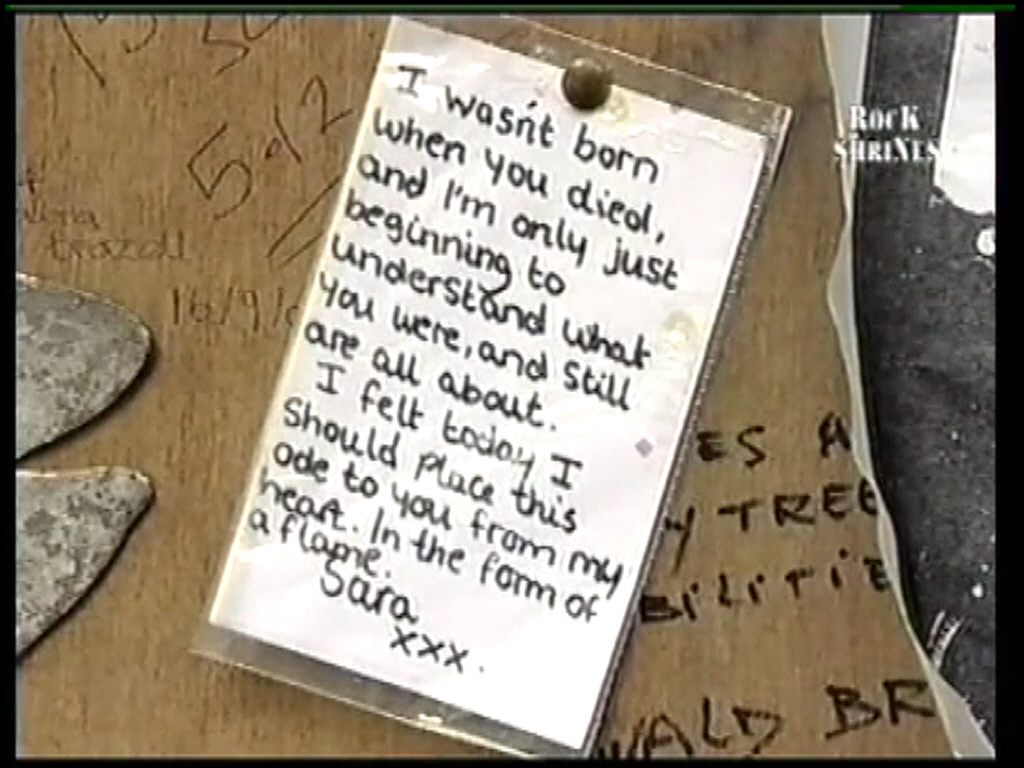 I wasn't born
when you died,
and I'm only just
beginning to
understand what
you were, and still
are all about.
I felt today I
should place this
ode to you from my
heart. In the form of
a flame.
Sara
xxx.
ROCK
SHRINES
592
16/9/
ES A
Y TREE
BILITIE
WALD BR